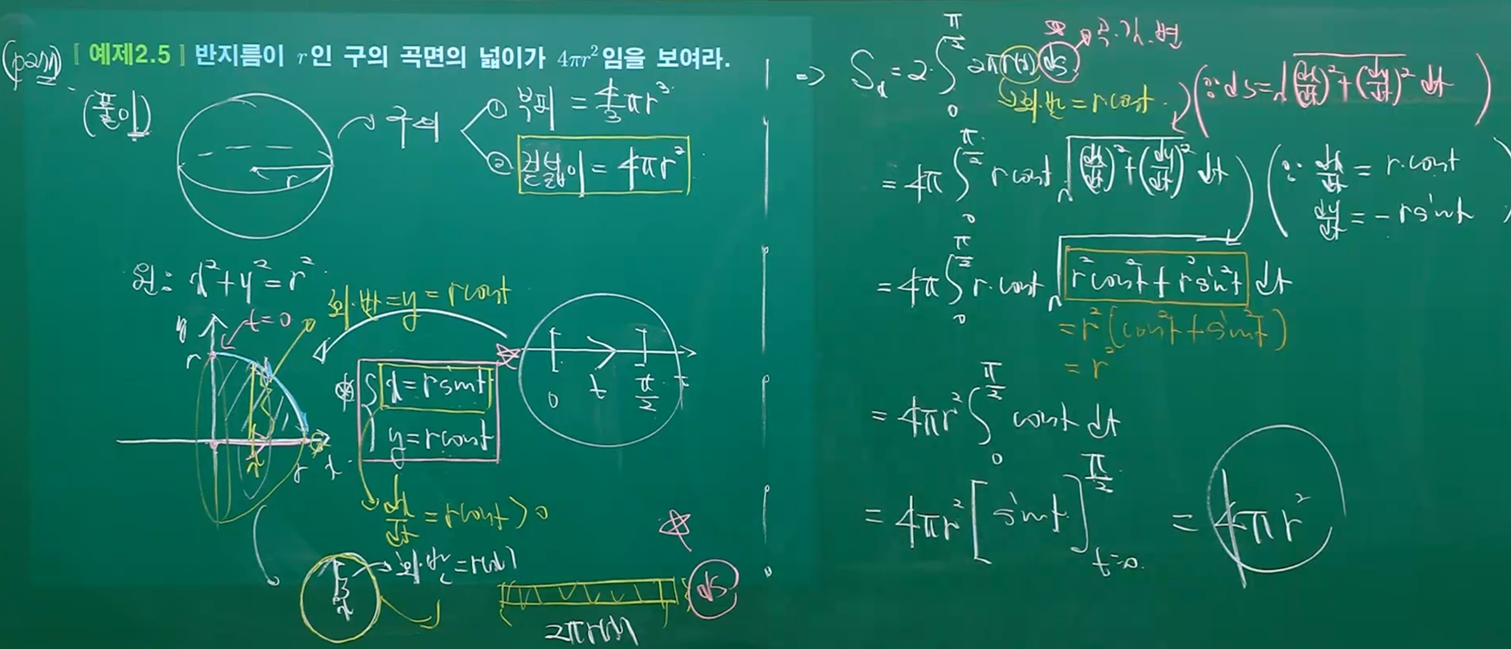 [예제2.5] 반지름이 r인 구의 곡면의 넓이가 4πr²임을 보여라.
(풀이)
구의
① 부피 = 4/3 πr³
② 겉넓이 = 4πr²
r
원: x²+y²=r²
회·반=y=rcost
t=0
y
r
x r x
x=rsint
y=rcost
0 t π/2
dx/dt = rcost > 0
회·반=r(x)
x
2πr(x)
ds
=> Sx = 2·∫₀^(π/2) 2πr(x) ds
회·반=r·cost
(∵ds=√((dx/dt)²+(dy/dt)²) dt)
= 4π ∫₀^(π/2) rcost √((dx/dt)²+(dy/dt)²) dt
(∵ dx/dt = r·cost
dy/dt = -rsint)
= 4π ∫₀^(π/2) r·cost √(r²cos²t+r²sin²t) dt
= r²(cos²t+sin²t)
= r²
= 4πr² ∫₀^(π/2) cost dt
= 4πr² [sint]_(t=0)^(π/2) = 4πr²